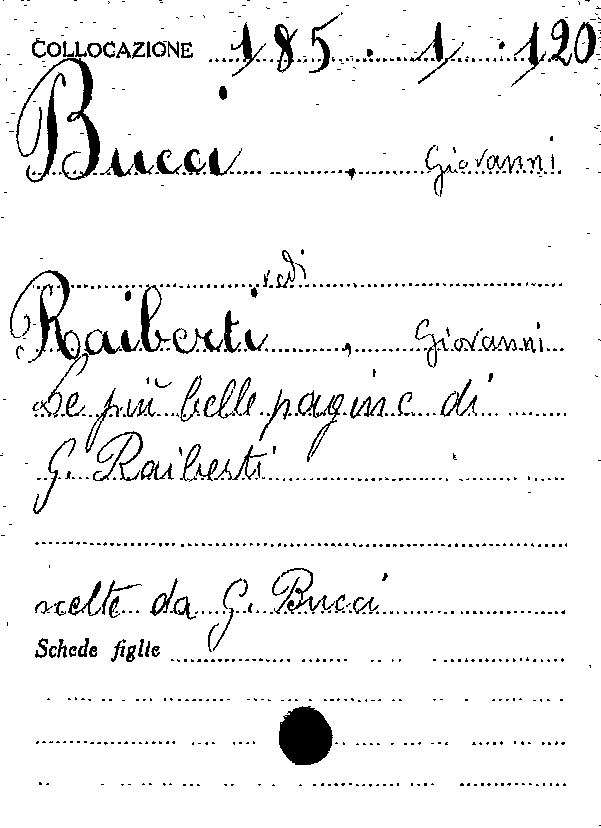 COLLOCAZIONE 185.1.120
Bucci, Giovanni
vedi
Raiberti, Giovanni
Le più belle pagine di
G. Raiberti
scelte da G. Bucci
Schede figlie